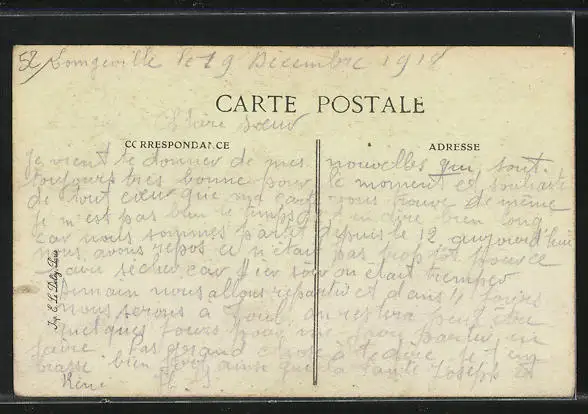 52 Longeville le 19 Décembre 1918
CARTE POSTALE
Chère Sœur
CORRESPONDANCE
ADRESSE
Je vient te donner de mes nouvelles qui sont
toujours très bonne pour le moment et souhaite
de tout cœur que ma carte vous trouve de même
Je n'est pas bien le temps d'en dire bien long
car nous sommes partit depuis le 12 aujourd'hui
nous avons repos ce n'étai pas trop tôt pour ce
faire sécher car hier soir on était tremper
Demain nous allons repartir et dans 4 jours
nous serons a on restra peut être
quelques jours pour partir en
Pas grand chose à te dire Je t'em
brasse bien fort ainsi que la Joseph et
René
Imp. E. Le Deley, Paris